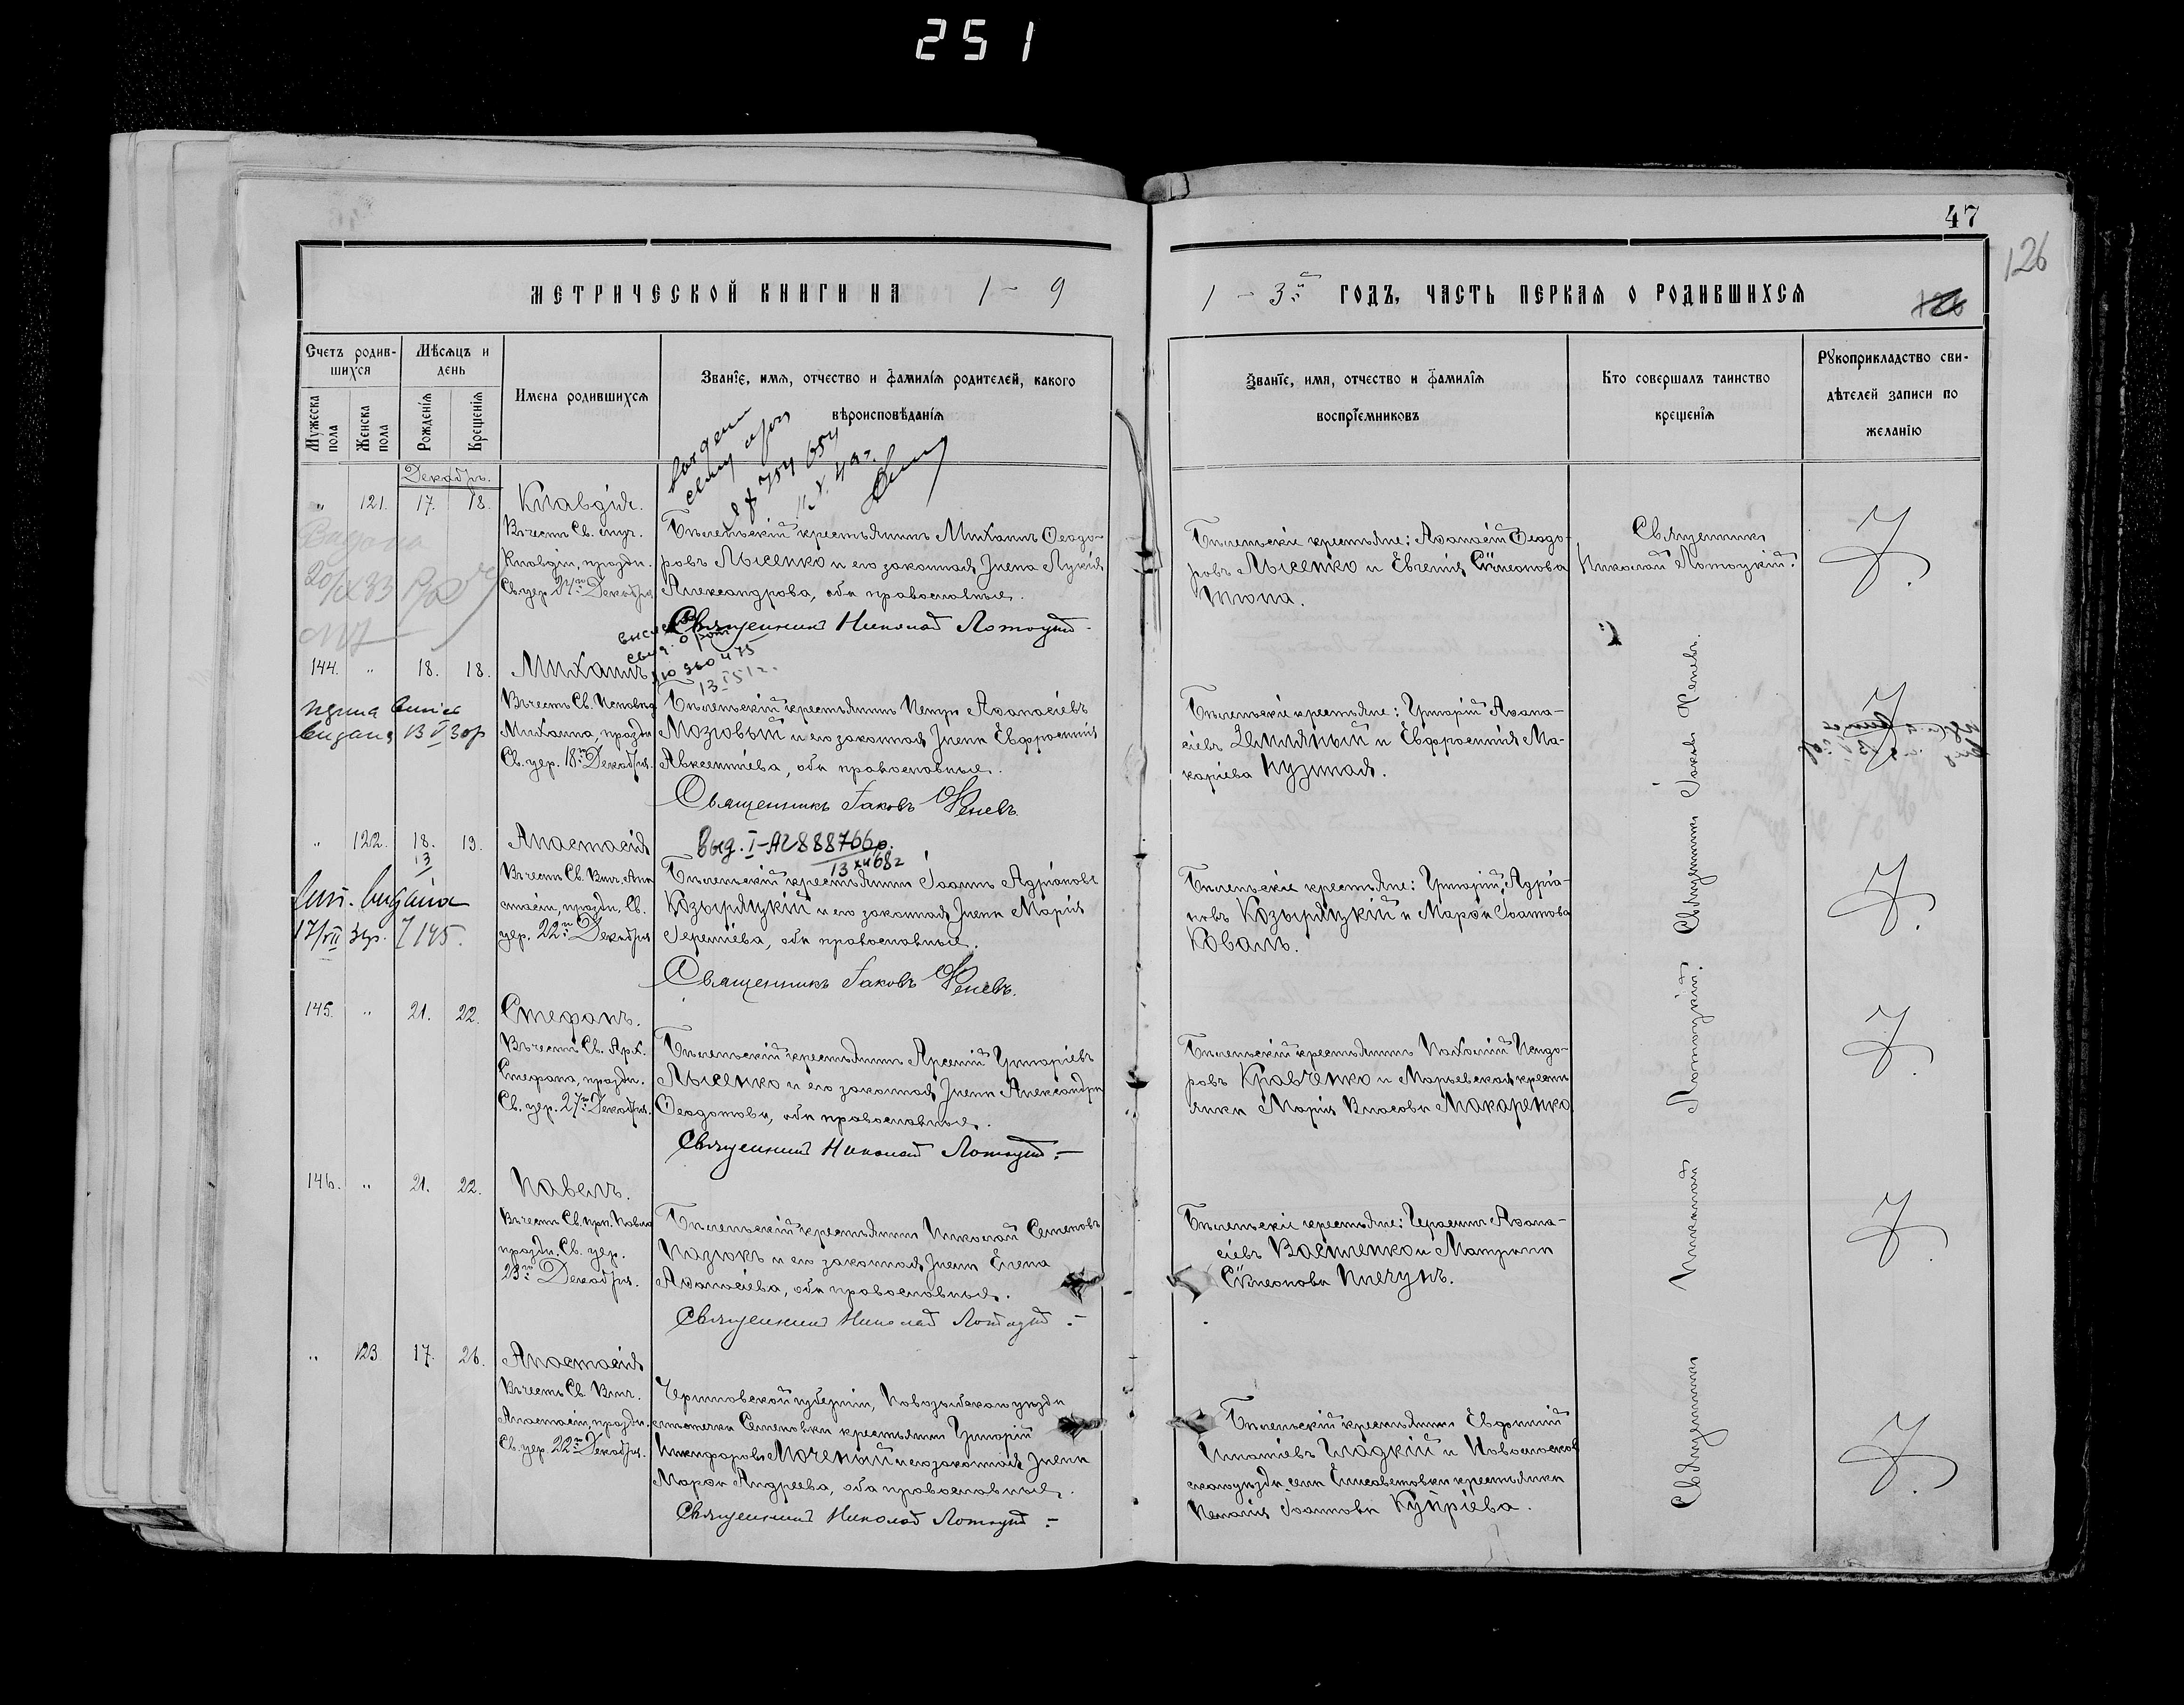 251
47
126
МЕТРИЧЕСКОЙ КНИГИ НА 1 – 9
1 – 3й ГОДЪ, ЧАСТЬ ПЕРВАЯ О РОДИВШИХСЯ
Счетъ родив-
шихся
Мѣсяцъ и
день
Имена родившихся
Званіе, имя, отчество и фамилія родителей, какого
вѣроисповѣданія
Званіе, имя, отчество и фамилія
воспріемниковъ
Кто совершалъ таинство
крещенія
Рукоприкладство сви-
дѣтелей записи по
желанію
Мужеска
пола
Женска
пола
Рожденія
Крещенія
Декабрь.
„ 121. 17. 18. Клавдія.
Въ честь Св. муч.
Клавдіи, праздн.
Св. цер. 24го Декабря
Бѣленьскій крестьянинъ Михаилъ Ѳеодо-
ровъ Лысенко и его законная жена Лукія
Александрова, оба православные.
Священникъ Николай Лотоцкій
Бѣленьскіе крестьяне: Аѳанасій Ѳеодо-
ровъ Лысенко и Евгенія Сѵмеонова
Священникъ
Николай Лотоцкій.
20/IX 33
144. „ 18. 18. Михаилъ
Въ честь Св. Исповѣд
Михаила, праздн
Св. цер. 18го Декабря.
Бѣленьскій крестьянинъ Петръ Аѳанасіевъ
Мозговый и его законная жена Евфросинія
Авксентіева, оба православные.
Священникъ Іаковъ
Бѣленьскіе крестьяне: Григорій Аѳана-
сіевъ и Евфросинія Ма-
каріева
„ 122. 18. 19. Анастасія
Въ честь Св. Влмч. Ана
стасіи, праздн. Св.
цер. 22го Декабря
Выд. I-АЛ 888766
13 XII 68г
Бѣленьскій крестьянинъ Іоаннъ Адріановъ
Козырицкій и его законная жена Марія
Іереміева, оба православные.
Священникъ Іаковъ
Бѣленьскіе крестьяне: Григорій Адріа-
новъ Козырицкій и Марѳа Іоаннова
Коваль.
145. „ 21. 22. Стефанъ.
Въ честь Св. Арх.
Стефана, праздн.
Св. цер. 27го Декабря.
Бѣленьскій крестьянинъ Арсеній Григоріевъ
Лысенко и его законная жена Александра
Ѳеодотова, оба православные.
Священникъ Николай Лотоцкій
Бѣленьскій крестьянинъ Пахомій Исидо-
ровъ Кравченко и Марьевская кресть
янка Марія Власова Макаренко
146. „ 21. 22. Павелъ.
Въ честь Св. прп. Павла
праздн. Св. цер.
23го Декабря.
Бѣленьскій крестьянинъ Николай Семеновъ
Пазюкъ и его законная жена Елена
Аѳанасіева, оба православные.
Священникъ Николай Лотоцкій
Бѣленьскіе крестьяне: Герасимъ Аѳана-
сіевъ Василенко и Матрона
Сѵмеонова Плечунъ.
„ 123 17. 26. Анастасія
Въ честь Св. Влмч.
Анастасіи, праздн.
Св. цер. 22го Декабря.
Черниговской губерніи, Новозыбскаго уѣзда
мѣстечка Семеновки крестьянинъ Григорій
Никифоровъ Моченый и его законная жена
Марѳа Андреева, оба православные.
Священникъ Николай Лотоцкій
Бѣленьскій крестьянинъ Евфимій
Игнатіевъ Гладкій и Новомосков
скаго уѣзда села Елисаветовки крестьянка
Пелагія Іоаннова Купріева.
Священникъ Николай Лотоцкій. Священникъ Іаковъ